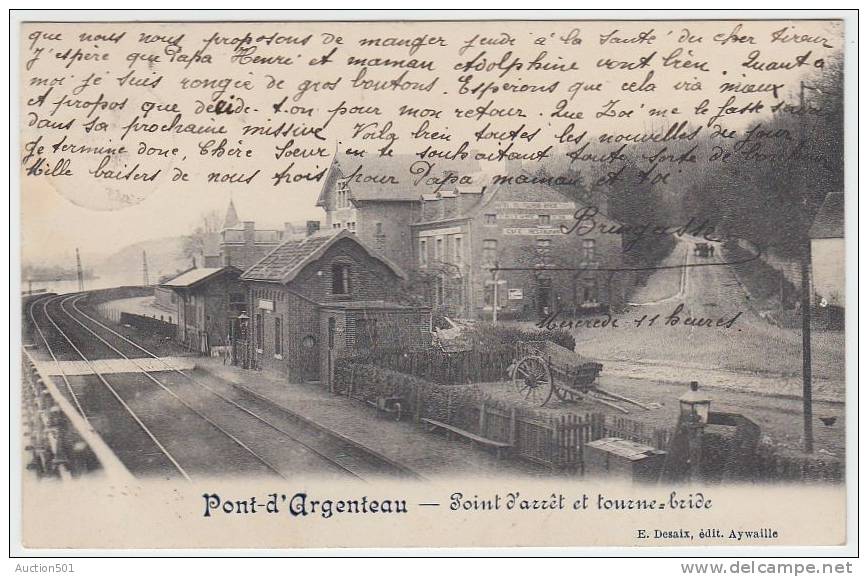 que nous nous proposons de manger jeudi à la santé du cher tireur
J'espère que Papa Henri et maman Adolphine vont bien. Quant à
moi je suis rongée de gros boutons. Espérons que cela ira mieux
et propos que décide-t-on pour mon retour. Que Zoé me le fasse savoir
dans sa prochaine missive. Voila bien toutes les nouvelles du jour
Je termine donc, Chère Soeur en te souhaitant toute sorte de bonheur
Mille baisers de nous trois pour Papa, maman et toi
Mercredi 11 heures
HOTEL DU
CAFE RESTAURANT
Pont-d'Argenteau — Point d'arrêt et tourne-bride
E. Desaix, édit. Aywaille
Auction501
delcampe.net